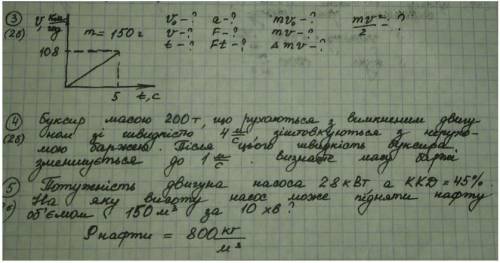 ③ v, км/год
(2б) m = 150 г
108
5 t, c
v₀ - ? a - ? mv₀ - ? mv²/2 - ?
v - ? F - ? mv - ?
t - ? Ft - ? Δmv - ?
④ Буксир масою 200 т, що рухається з вимкненим двигу-
(2б) ном зі швидкістю 4 м/с, зіштовхуються з нерухо-
мою баржею. Після цього швидкість буксира
зменшується до 1 м/с. Визначте масу баржі.
⑤ Потужність двигуна насоса 28 кВт а ККД = 45%
На яку висоту насос може підняти нафту
об'ємом 150 м³ за 10 хв?
ρ нафти = 800 кг/м³